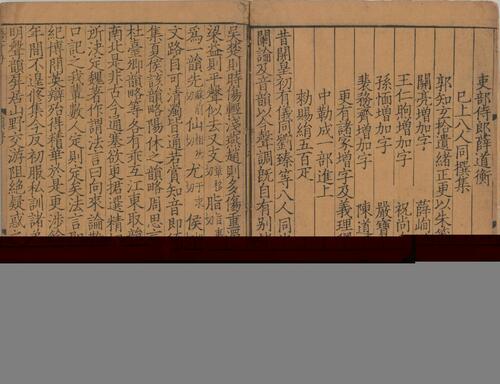 吏部侍郎薛道衡
已上八人同撰集
郭知玄拾遺緒正更以朱
關亮增加字 薛峋
王仁昫增加字 祝尚
孫愐增加字 嚴寶
裴務齊增加字 陳道
更有諸家增字及義理
中勒成一部進上
勑賜絹五百疋
昔開皇初有儀同劉臻等八人同
闌論及音韻以今聲調既自有別
吳楚則時傷輕淺燕趙則多傷重
梁益則平聲似去又支章移切脂旨夷
爲一韻先蘇前切仙相然切尤于求切侯
文路自可清濁皆通若賞知音即
集夏侯該韻略陽休之韻略周思
杜臺卿韻略等各有乖互江東取
南北是非古今通塞欲更捃選精
所決定魏著作謂法言曰向來論
口記之我輩數人定則定矣法言即
紀博問英辯殆得精華於是更涉
年間不遑修集今返初服私訓諸
明聲韻屏居山野交游阻絕疑惑